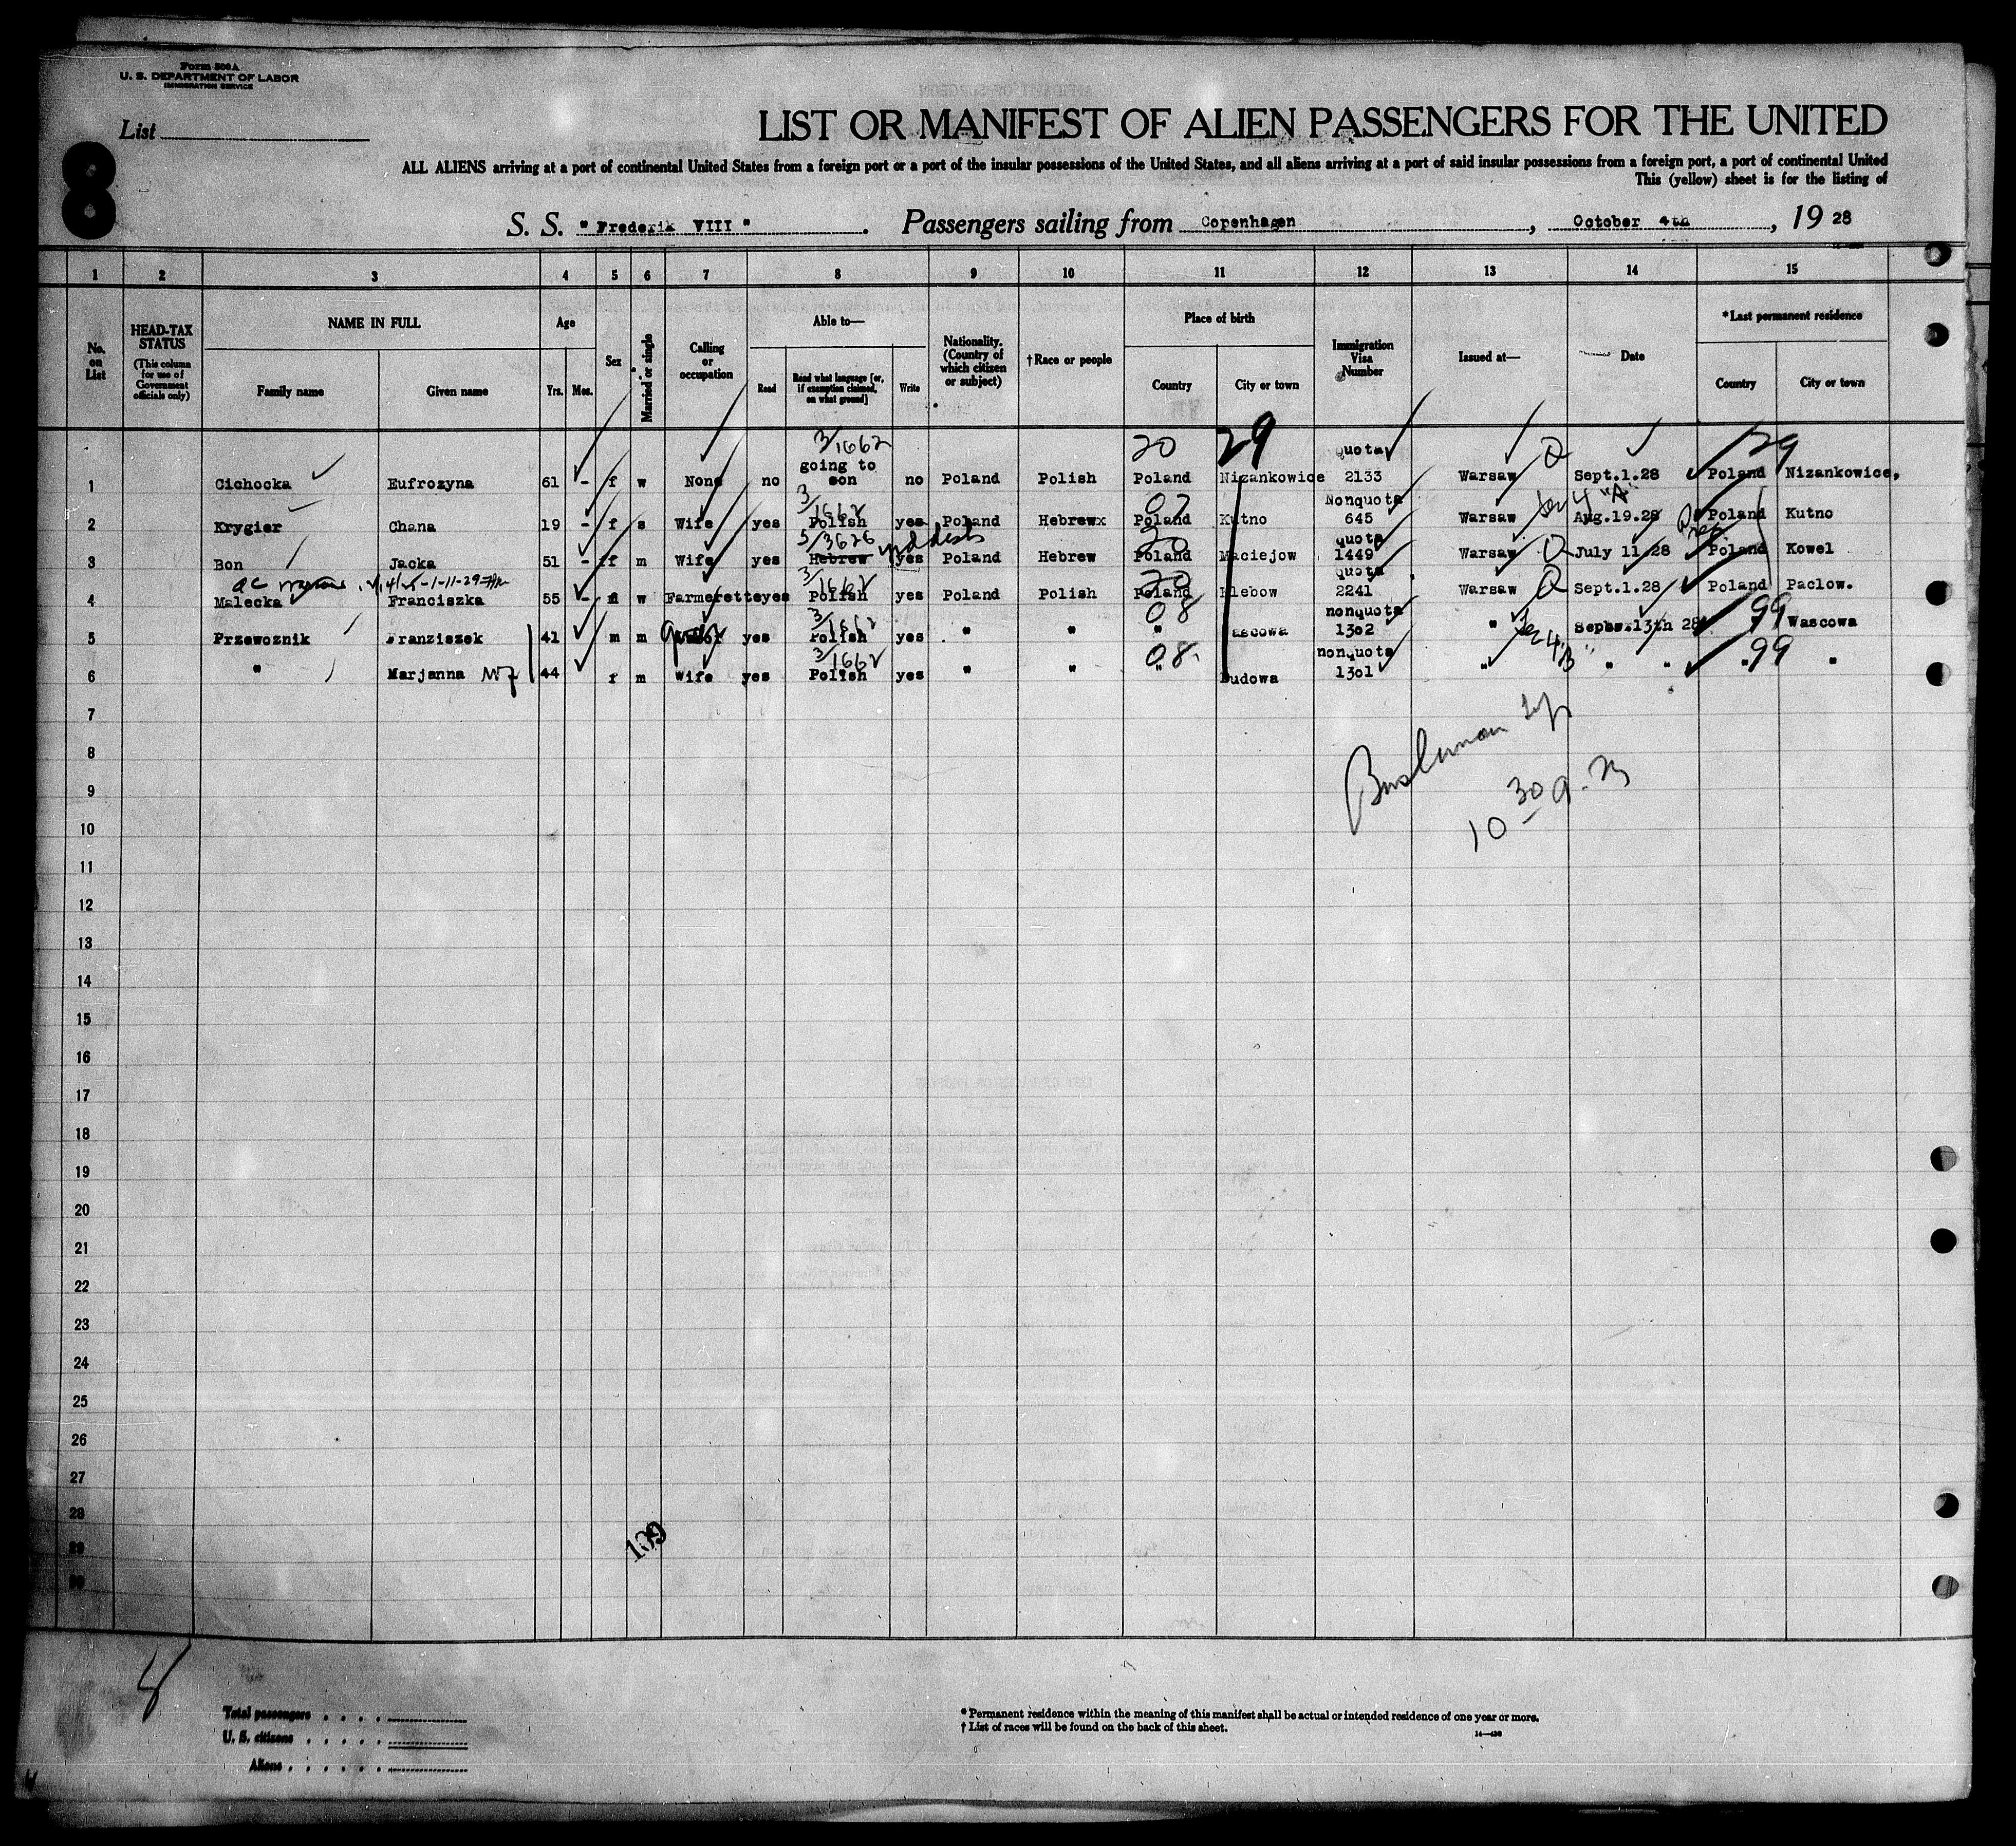 Form 500A
U. S. DEPARTMENT OF LABOR
IMMIGRATION SERVICE
List
8
LIST OR MANIFEST OF ALIEN PASSENGERS FOR THE UNITED
ALL ALIENS arriving at a port of continental United States from a foreign port or a port of the insular possessions of the United States, and all aliens arriving at a port of said insular possessions from a foreign port, a port of continental United
This (yellow) sheet is for the listing of
S. S. "Frederik VIII". Passengers sailing from Copenhagen, October 4th, 19 28
1 2 3 4 5 6 7 8 9 10 11 12 13 14 15
No. on List
HEAD-TAX STATUS (This column for use of Government officials only)
NAME IN FULL
Family name Given name
Age
Yrs. Mos.
Sex
Married or single
Calling or occupation
Able to—
Read Read what language [or, if exemption claimed, on what ground] Write
Nationality. (Country of which citizen or subject)
†Race or people
Place of birth
Country City or town
Immigration Visa Number
Issued at—
Date
*Last permanent residence
Country City or town
3/1662 20 29 quota 29
going to
1 Cichocka Eufrozyna 61 - f w None no son no Poland Polish Poland Nizankowice 2133 Warsaw Q Sept.1.28 Poland Nizankowice,
3/1662 07 Nonquota Sec 4 "A"
2 Krygier Chana 19 - f s Wife yes Polish yes Poland Hebrewx Poland Kutno 645 Warsaw Aug.19.28 Poland Kutno
5/3626 20 quota
3 Bon Jacka 51 - f m Wife yes Hebrew yes Poland Hebrew Poland Maciejow 1449 Warsaw Q July 11.28 Poland Kowel
3/1662 20 quota
4 Malecka Franciszka 55 - f w Farmerette yes Polish yes Poland Polish Poland lebow 2241 Warsaw Q Sept.1.28 Poland Paclow.
3/1662 08 nonquota 99
5 Przewoznik Franziszek 41 m m yes Polish yes " " " ascowa 1302 " Sept.13th 28 Wascowa
3/1662 08 nonquota 99
6 " Marjanna 44 f m Wife yes Polish yes " " " udowa 1301 " " " "
7
8
9
10 30 a.m
10
11
12
13
14
15
16
17
18
19
20
21
22
23
24
25
26
27
28
29
30
139
8
Total passengers
U. S. citizens
Aliens
* Permanent residence within the meaning of this manifest shall be actual or intended residence of one year or more.
† List of races will be found on the back of this sheet.
14—430